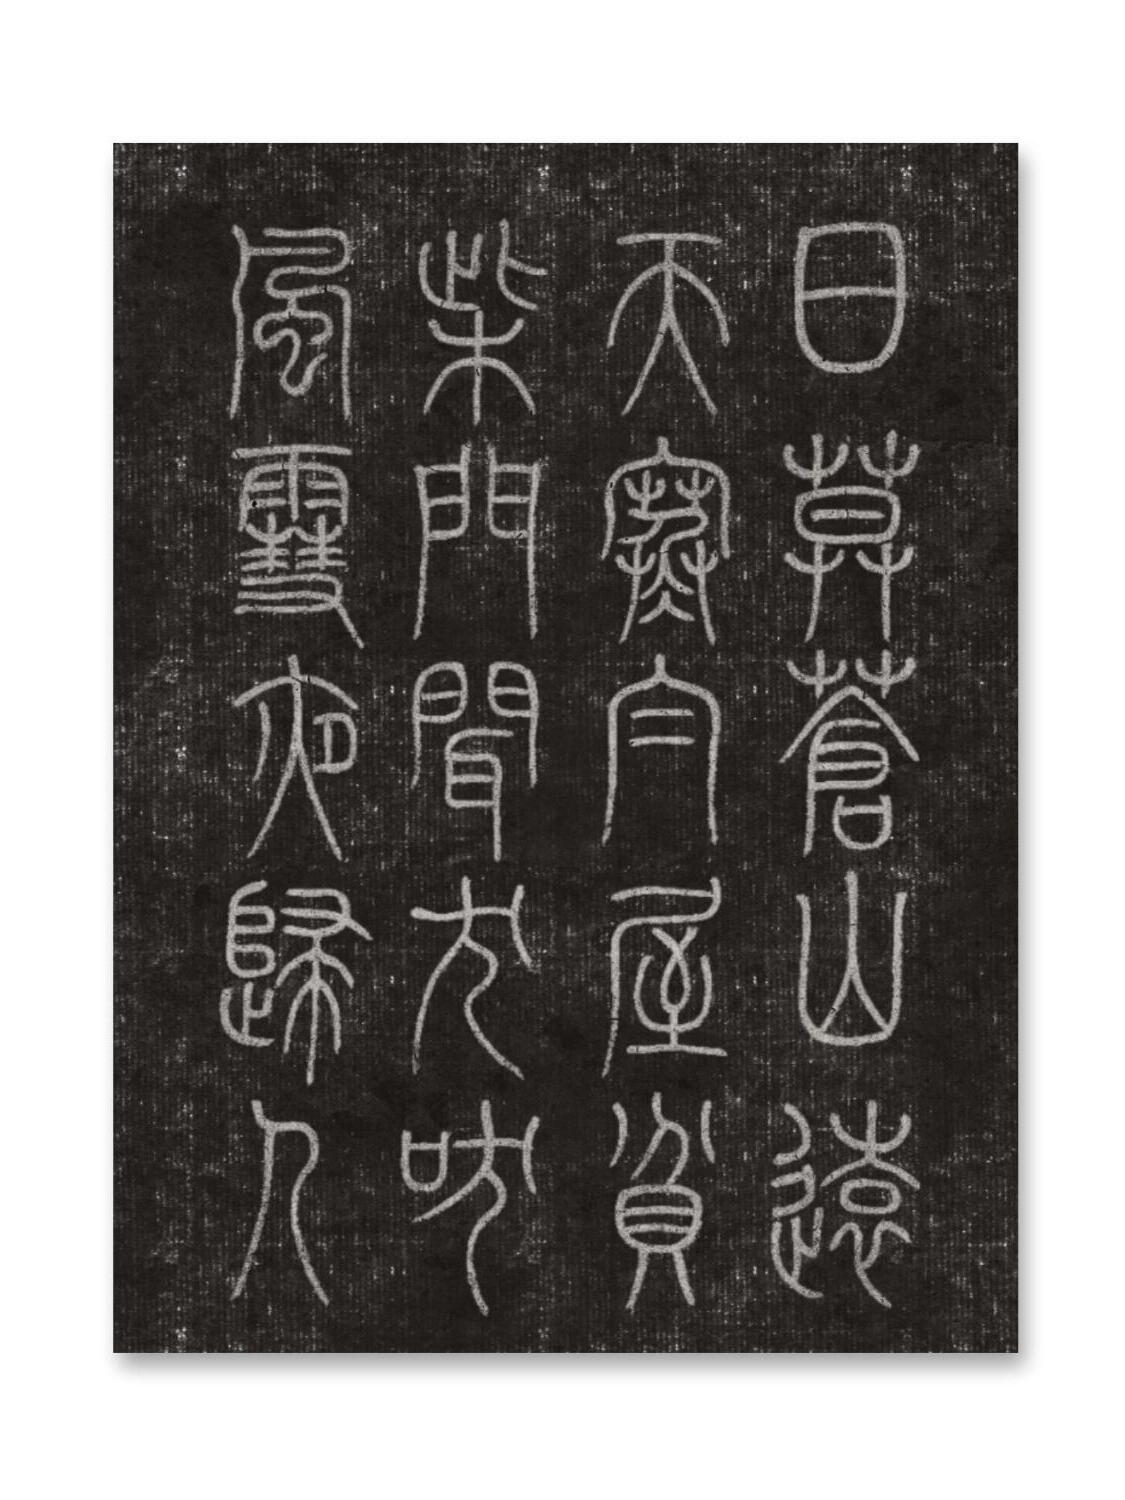 日莫蒼山遠
天寒白屋貧
柴門聞犬吠
風雪夜歸人